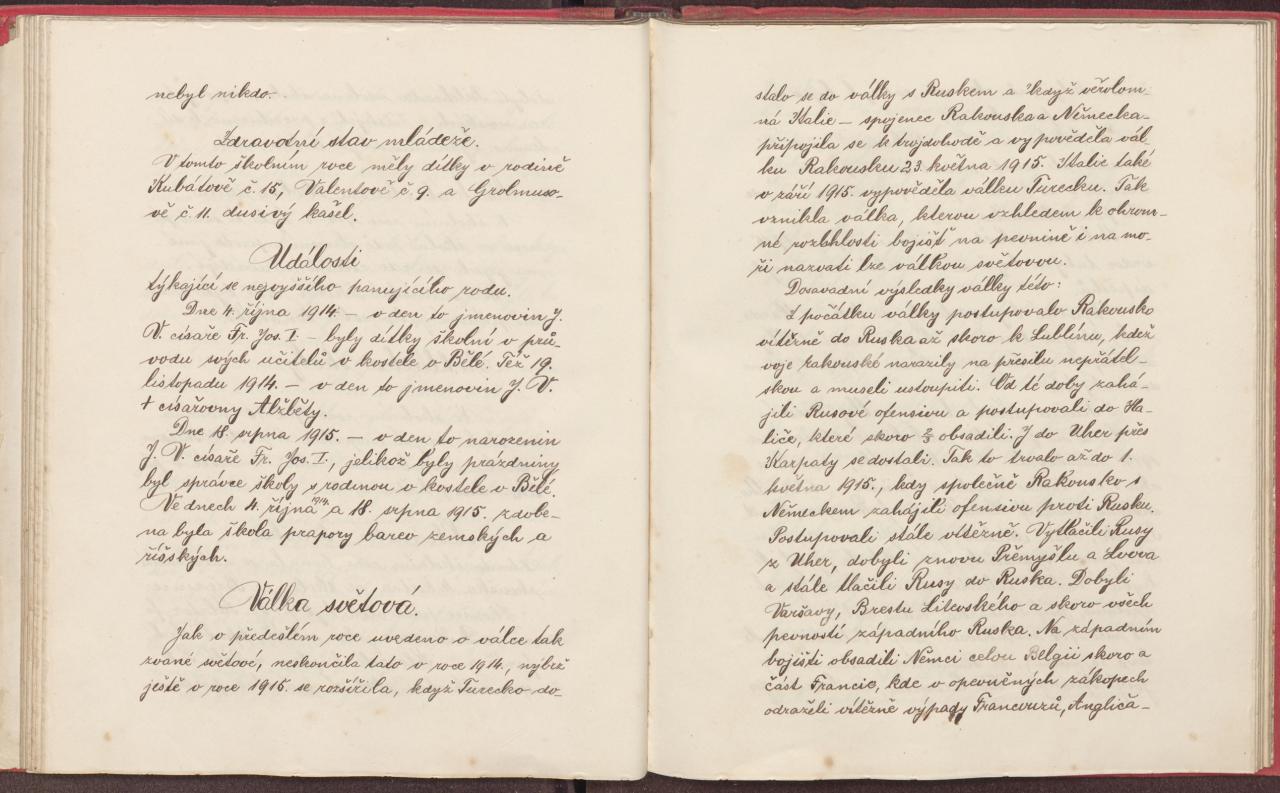 nebyl nikdo.
Zdravotní stav mládeže.
V tomto školním roce měly dítky v rodině
Kubátově č. 15, Valentově č 9. a Grolmuso-
vě č. 11. dusivý kašel.
Události
týkající se nejvyššího panujícího rodu.
Dne 4. října 1914. – v den to jmenovin J.
V. císaře Fr. Jos. I. – byly dítky školní v prů-
vodu svých učitelů v kostele v Bělé. Též 19.
listopadu 1914. – v den to jmenovin J. V.
+ císařovny Alžběty.
Dne 18. srpna 1915. – v den to narozenin
J. V. císaře Fr. Jos. I., jelikož byly prázdniny
byl správce školy s rodinou v kostele v Bělé.
Ve dnech 4. října 1914. a 18. srpna 1915. zdobe-
na byla škola prapory barev zemských a
říšských.
Válka světová.
Jak v předešlém roce uvedeno o válce tak
zvané světové, neskončila tato v roce 1914., nýbrž
ještě v roce 1915. se rozšířila, když Turecko do-
stalo se do války s Ruskem a když věrolom-
ná Italie – spojenec Rakouska a Německa –
připojila se k trojdohodě a vypověděla vál-
ku Rakousku 23. května 1915. Italie také
v září 1915. vypověděla válku Turecku. Tak
vznikla válka, kterou vzhledem k ohrom-
né rozbhlosti bojišť na pevnině i na mo-
ři nazvati lze válkou světovou.
Dosavadní výsledky války této:
Z počátku války postupovalo Rakousko
vítězně do Ruska až skoro k Lublínu, kdež
voje rakouské narazily na přesilu nepřátel-
skou a museli ustoupiti. Od té doby zahá-
jili Rusové ofensivu a postupovali do Ha-
liče, které skoro 2/3 obsadili. I do Uher přes
Karpaty se dostali. Tak to trvalo až do 1.
května 1915., kdy společně Rakousko s
Německem zahájili ofensivu proti Rusku.
Postupovali stále vítězně. Vytlačili Rusy
z Uher, dobyli znovu Přemyšlu a Lvova
a stále tlačili Rusy do Ruska. Dobyli
Varšavy, Brestu Litevského a skoro všech
pevností západního Ruska. Na západním
bojišti obsadili Němci celou Belgii skoro a
část Francie, kde v opevněných zákopech
odraželi vítězně výpady Francouzů, Angliča-